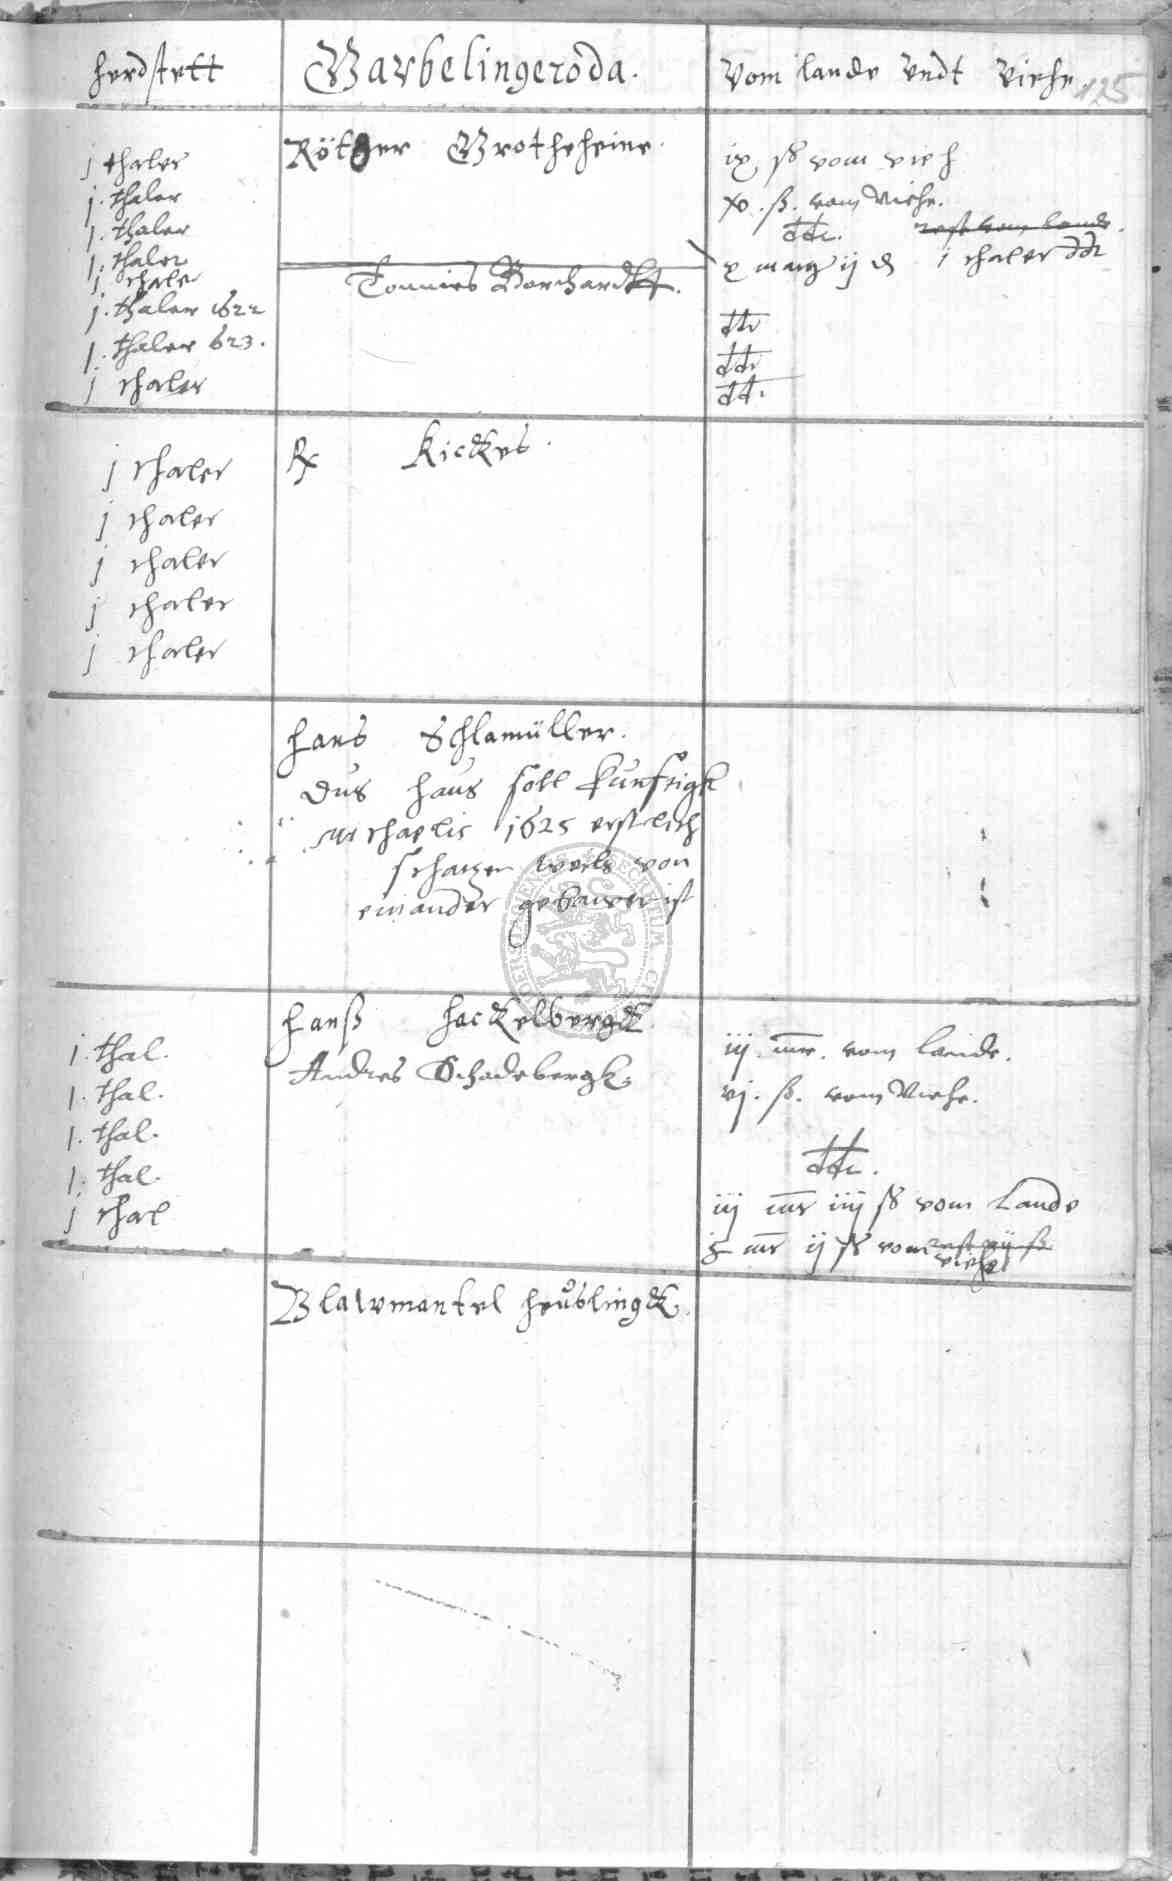 herdstett
Barbelingeroda.
Vom lande Vndt Viehe
125
j thaler
j. thaler
j. thaler
j. thaler
j thaler
j. thaler 1622
j. thaler 623.
j thaler
Rötger Grotheheine.
Tonnies Borchardtt.
ix ß vom vieh
xv. ß. vom Viehe.
ddt. rest vom lande.
x marg ij d j thaler ddt
ddt
ddt
ddt.
j thaler
j thaler
j thaler
j thaler
j thaler
Kickes.
Hans Schlamüller.
Dus haus soll kunftigk
Michaelis 1625 erstlich
schatzen weils von
einander gebawet ist
j. thal.
j. thal.
j. thal.
j. thal.
j thal
Hanß Hackelbergk.
Andres Schadebergk.
iij. mr. vom lande.
vj. ß. vom Viehe.
ddt.
iij mr iiij ß vom Lande
mr ij ß vom
viehe
Blawmantel heuslingk.